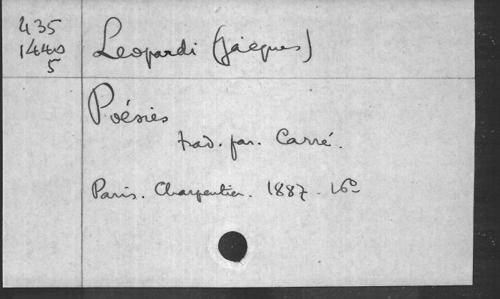 435
1440
5
Leopardi (Jacques)
Poésies
trad. par. Carré.
Paris. Charpentier. 1887. 16º